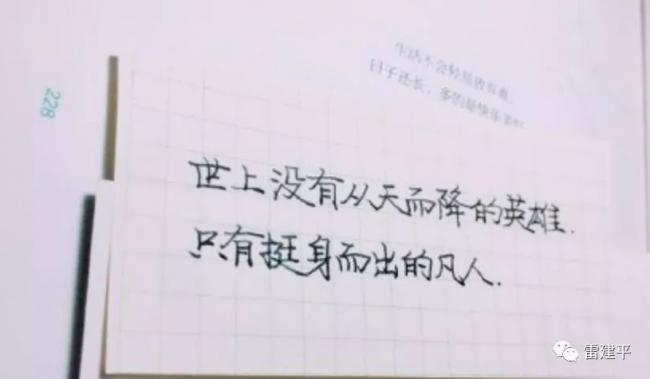 生活不会轻易放弃谁
日子还长，多的是快乐
228
世上没有从天而降的英雄.
只有挺身而出的凡人.
雷建平